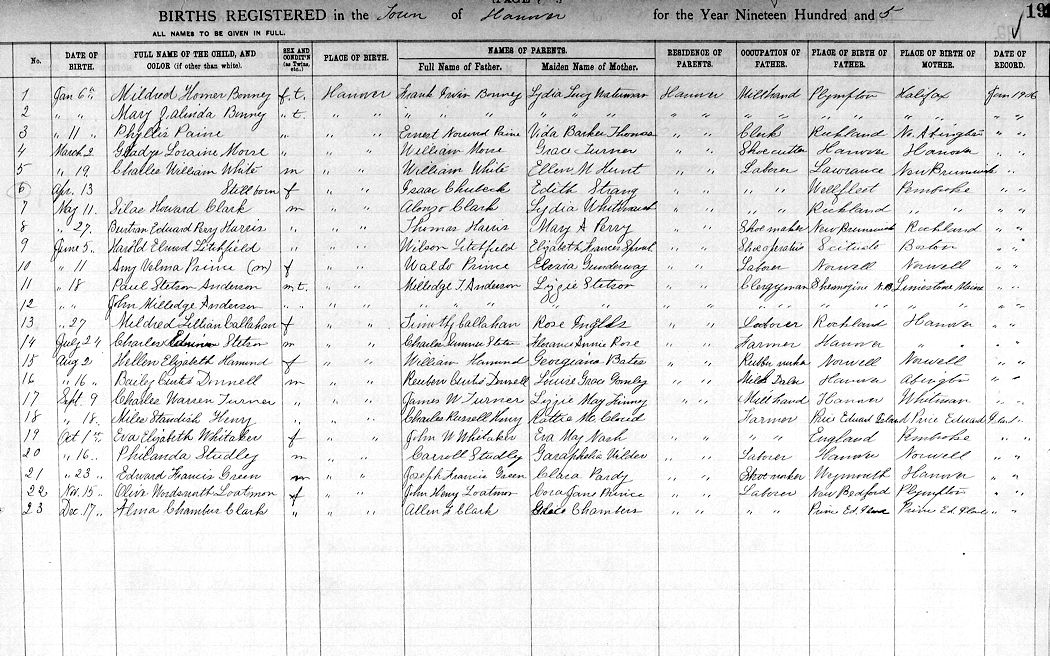 BIRTHS REGISTERED in the Town of Hanover for the Year Nineteen Hundred and 5 19
ALL NAMES TO BE GIVEN IN FULL.
No. DATE OF BIRTH. FULL NAME OF THE CHILD, AND COLOR (if other than white). SEX AND CONDIT'N (as Twins, etc.,) PLACE OF BIRTH. NAMES OF PARENTS. Full Name of Father. Maiden Name of Mother. RESIDENCE OF PARENTS. OCCUPATION OF FATHER. PLACE OF BIRTH OF FATHER. PLACE OF BIRTH OF MOTHER. DATE OF RECORD.
1 Jan 6 " Mildred Homer Bonney f. t. Hanover Frank Bonney Lydia Lucy Waterman Hanover Millhand Plympton Halifax Jan 1906
2 " " Mary Zalinda Bonney " t. " " " " " " " " " " " " " " "
3 " 11 " Phyllis Paine " " " Ernest Norward Paine Vida Barker Thomas " " Clerk Rockland No. Abington " "
4 March 2 Gladys Loraine Morse " " " William Morse Grace Turner " " Shoecutter Hanover Hanover " "
5 " 19 Charles William White m " " William White Ellen M Hunt " " Laborer Lawrance New Brunswick " "
6 Apr. 13 Still born f " " Isaac Edith Strang " " " " Wellfleet Pembroke " "
7 May 11 Silas Howard Clark m " " Alonzo Clark Lydia " " " " Rockland " " " "
8 " 27 Bertran Edward Perry Harris " " " Thomas Harris Mary A Perry " " Shoemaker New Brunswick Rockland " "
9 June 5 Harold Elwood Litchfield " " " Wilson Litchfield Elizabeth Frances " " Scituate Boston " "
10 " 11 Amy Velma Prince f " " Waldo Prince " " Laborer Norwell Norwell " "
11 " 18 Paul Stetson Anderson m t. " " Milledge T Anderson Lizzie Stetson " " Clergyman N.B. Limestone Maine " "
12 " " John Milledge Anderson " " " " " " " " " " " " " "
13 " 27 Mildred Lillian Callahan f " " Timothy Callahan Rose " " Laborer Rockland Hanover " "
14 July 24 Charles Stetson m " " Charles Sumner Stetson Florence Annie Rose " " Farmer Hanover " " " "
15 Aug 2 Hellen Elizabeth f " " William Georgiana Bates " " Rubber Norwell Norwell " "
16 " 16 " Bailey Curtis Donnell m " " Reuben Curtis Donnell Louise Grace Gomley " " Milk Dealer Hanover Abington " "
17 Sept. 9 Charles Warren Turner " " " James W Turner Lizzie May " " Millhand Hanover Whitman " "
18 " 18 Miles Standish Henry " " " Charles Russell Henry " " Farmer Prince Edward Island Prince Edward Island " "
19 Oct 1 " Eva Elizabeth Whitaker f " " John W Whitaker Eva May Nash " " " " England Pembroke " "
20 " 16 Philanda Studley m " " Carroll Studley Garaphelia Wilder " " Laborer Hanover Norwell " "
21 " 23 " Edward Francis Green m " " Joseph Francis Green Clara Pardy " " Shoemaker Weymouth Hanover " "
22 Nov. 15 " Olive Wordsworth Loatmon f " " John Henry Loatmon Cora Jane Prince " " Laborer New Bedford Plympton " "
23 Dec 17 " Alma Chamber Clark " " " Allen G Clark Chambers " " Prince Ed. Prince Ed. " "